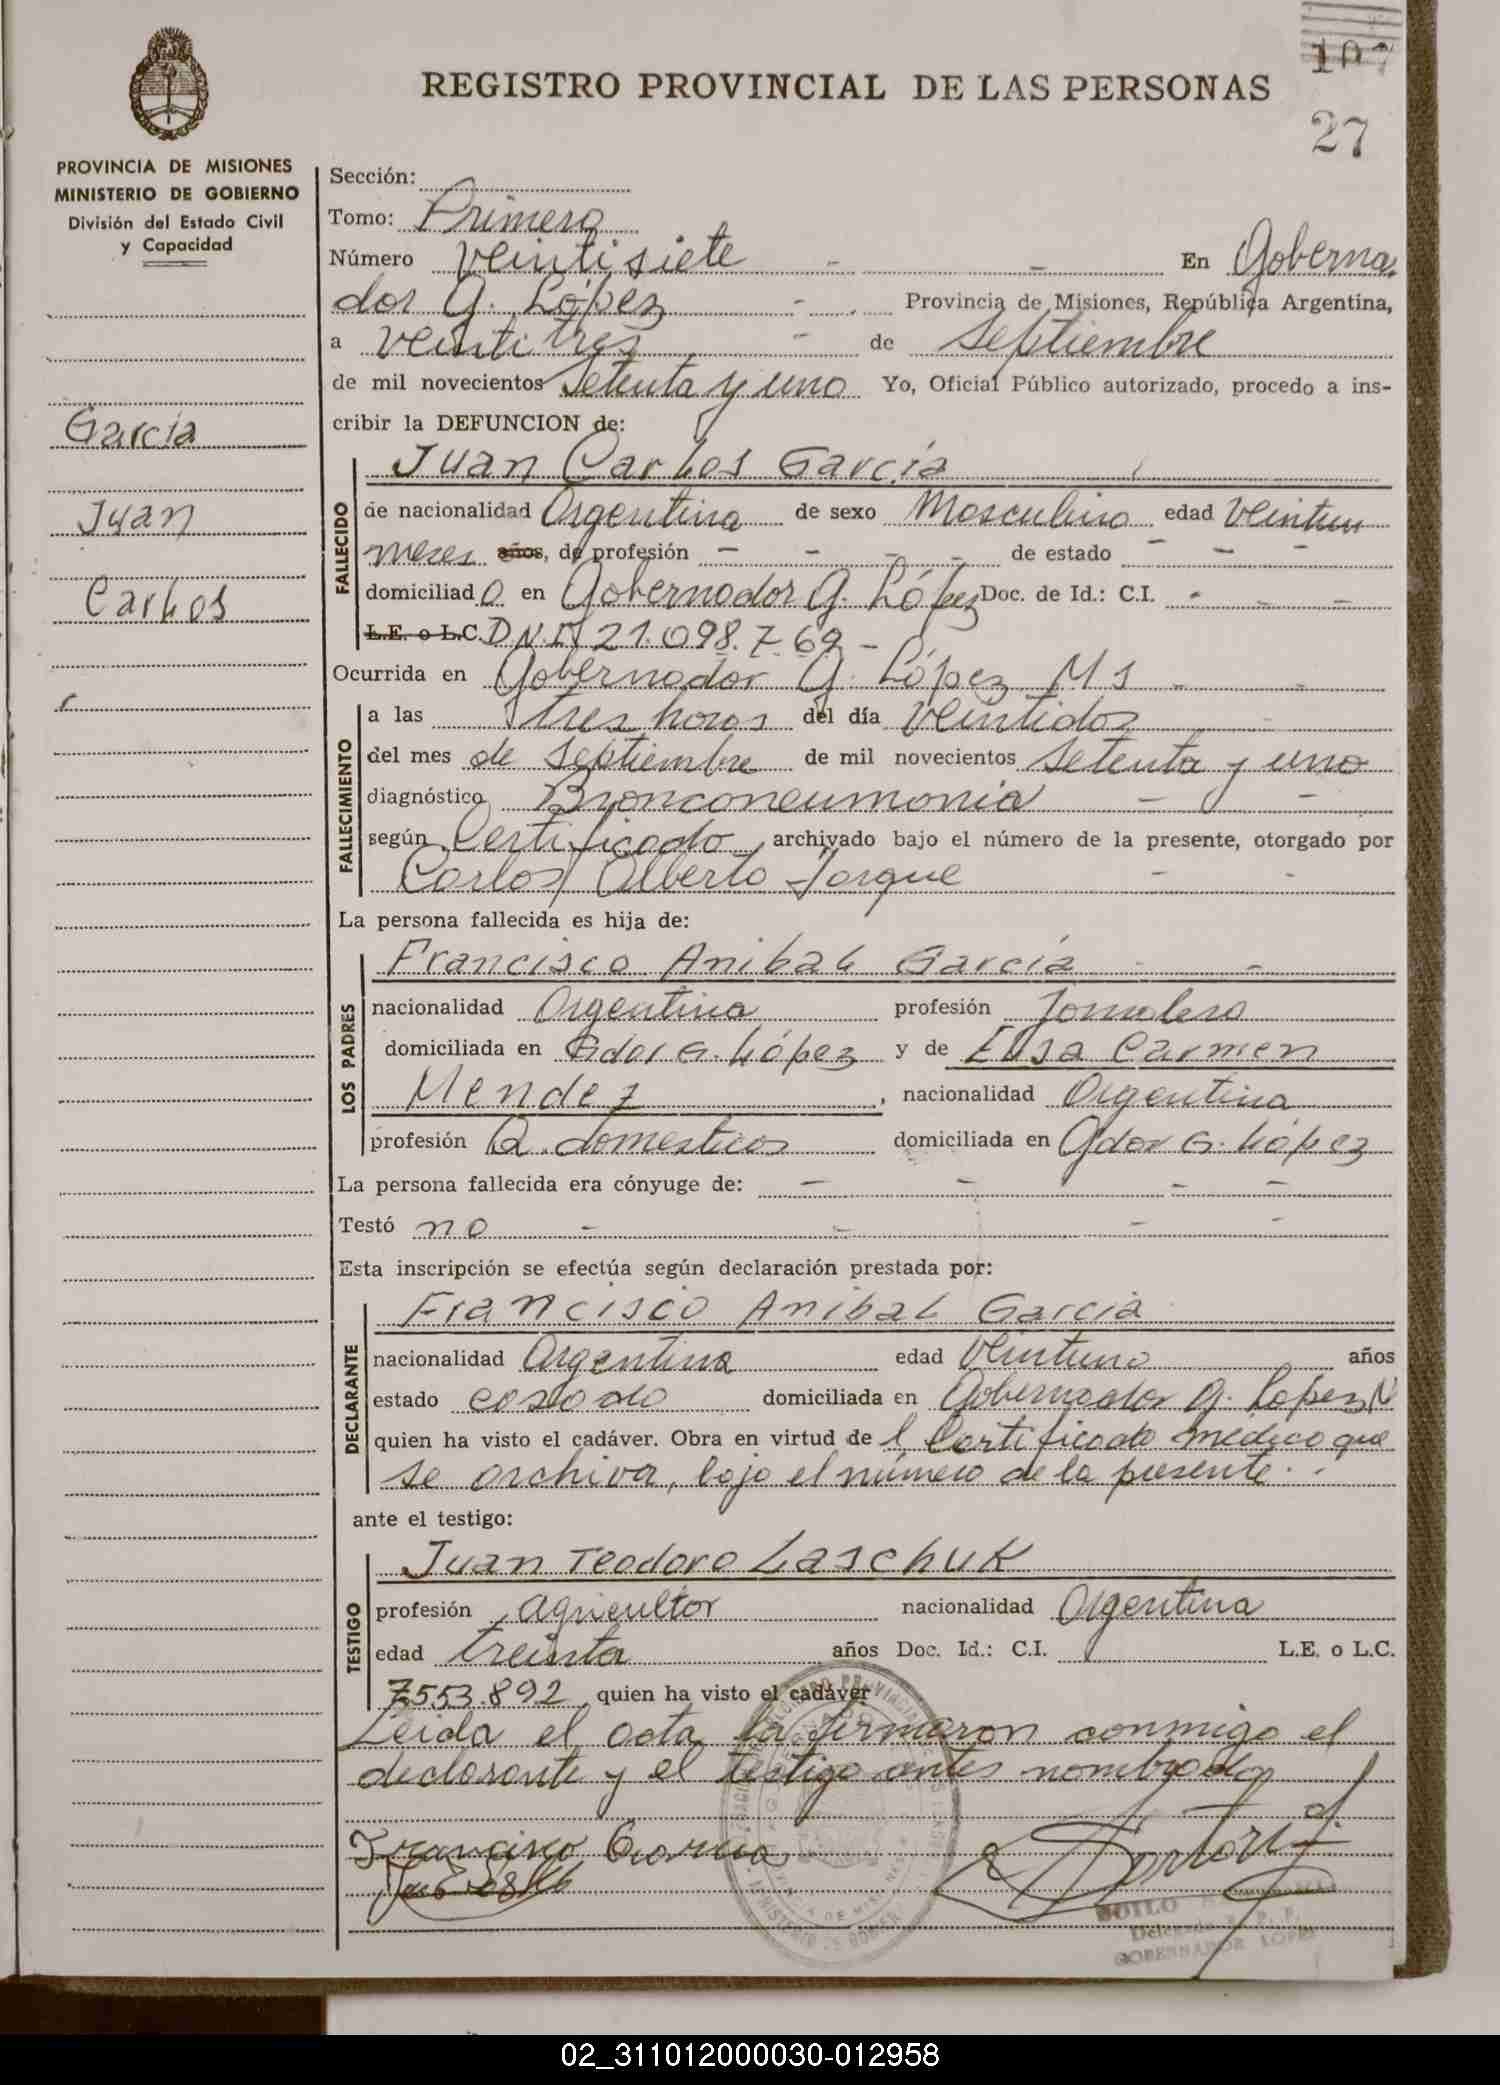 107
REGISTRO PROVINCIAL DE LAS PERSONAS
27
PROVINCIA DE MISIONES
MINISTERIO DE GOBIERNO
División del Estado Civil
y Capacidad
García
Juan
Carlos
Sección:
Tomo: Primero
Número veintisiete - - En Goberna
dor G. López - . Provincia de Misiones, República Argentina,
a veintitres - de septiembre
de mil novecientos setenta y uno Yo, Oficial Público autorizado, procedo a ins-
cribir la DEFUNCION de:
FALLECIDO
Juan Carlos García
de nacionalidad Argentina de sexo Masculino edad veintiun
meses años, de profesión - - - - de estado - - -
domiciliado en Gobernador G. López Doc. de Id.: C.I. - - -
L.E. o L.C. D.N.I. 21.098.769 -
Ocurrida en Gobernador G. López Ms - -
FALLECIMIENTO
a las tres horas del día veintidos
del mes de septiembre de mil novecientos setenta y uno
diagnóstico Bronconeumonia - -
según Certificado archivado bajo el número de la presente, otorgado por
Carlos Alberto - -
La persona fallecida es hija de:
LOS PADRES
Francisco Anibal García - -
nacionalidad Argentina profesión Jornalero
domiciliada en Gdor G. López y de Elisa Carmen
Mendez, nacionalidad Argentina
profesión Q. domesticos domiciliada en Gdor G. López
La persona fallecida era cónyuge de: - - - -
Testó no - - - -
Esta inscripción se efectúa según declaración prestada por:
DECLARANTE
Francisco Anibal Garcia
nacionalidad Argentina edad veintiuno años
estado casado domiciliada en Gobernador G. López
quien ha visto el cadáver. Obra en virtud de l Certificado médico que
se archiva, bajo el número de la presente. -
ante el testigo:
TESTIGO
Juan Teodoro Laschuk
profesión agricultor nacionalidad Argentina
edad treinta años Doc. Id.: C.I. L.E. o L.C.
7553.892 quien ha visto el cadáver
Leida el acta la firmaron conmigo el
declarante y el testigo antes nombrado
Francisco Garcia
GOBERNADOR LOPEZ
02_311012000030-012958